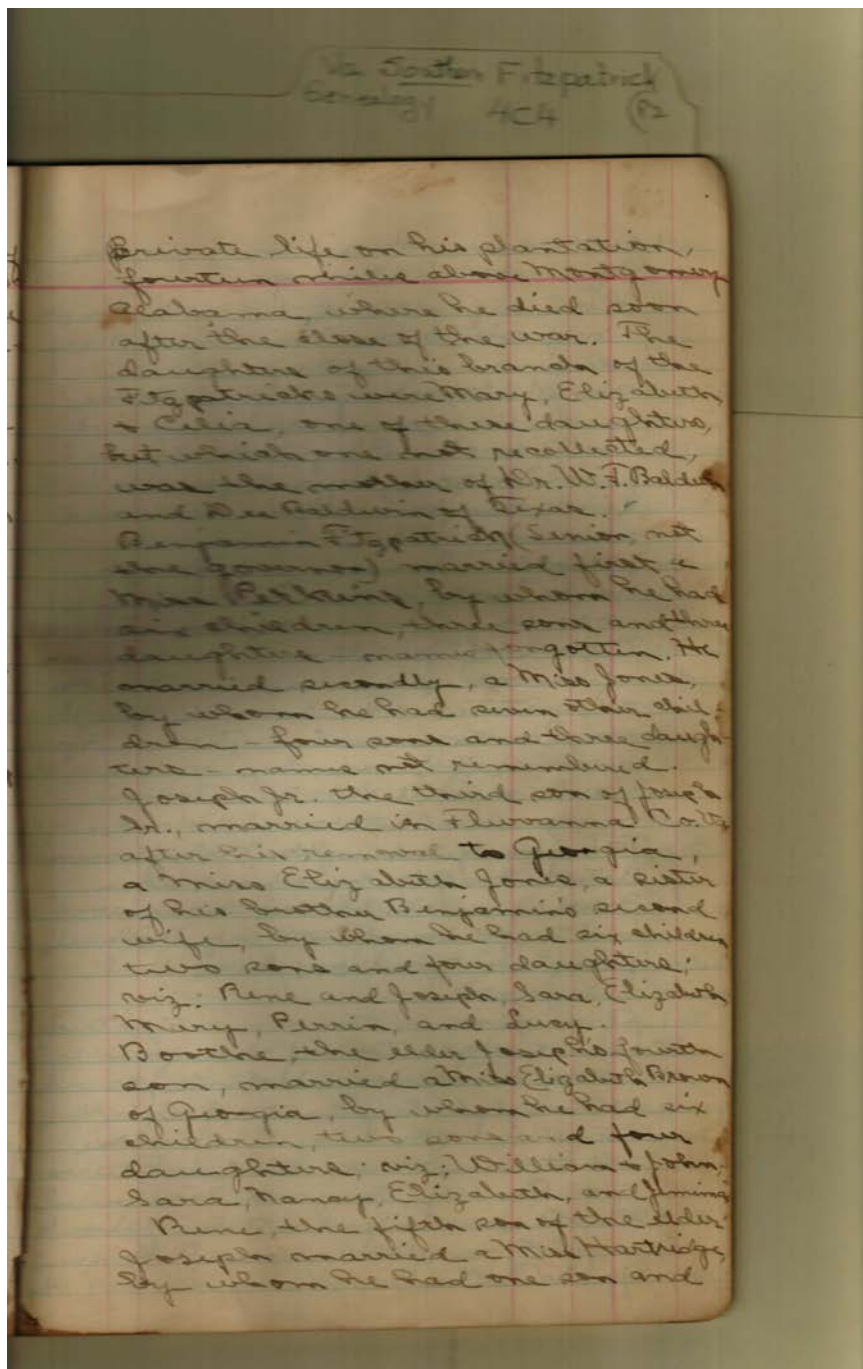 Va Southern Fitzpatrick
Genealogy 4C4 P2
private life on his plantation,
fourteen miles above Montgomery
Alabama, where he died soon
after the close of the war. The
daughters of this branch of the
Fitzpatricks were Mary, Elizabeth
& Celia, one of these daughters,
but which one not recollected,
was the mother of Dr. W. F. Baldwin
and Dee Baldwin of Texas.
Benjamin Fitzpatrick (Senior, not
the governor) married first a
Miss Perkins, by whom he had
six children, three sons and three
daughters - names forgotten. He
married secondly, a Miss Jones,
by whom he had seven other chil-
dren - four sons and three daugh-
ters - names not remembered.
Joseph Jr. the third son of Joseph
Sr., married in Fluvanna Co. Va
after his removal to Georgia,
a Miss Elizabeth Jones, a sister
of his brother Benjamin's second
wife, by whom he had six children
two sons and four daughters;
viz: Rene and Joseph, Sara, Elizabeth
Mary, Perrin, and Lucy.
Boothe, the elder Joseph's fourth
son, married a Miss Elizabeth Brown
of Georgia, by whom he had six
children, two sons and four
daughters; viz; William & John,
Sara, Nancy, Elizabeth, and Jemima
Rene, the fifth son of the elder
Joseph married a Miss Hartridge,
by whom he had one son and